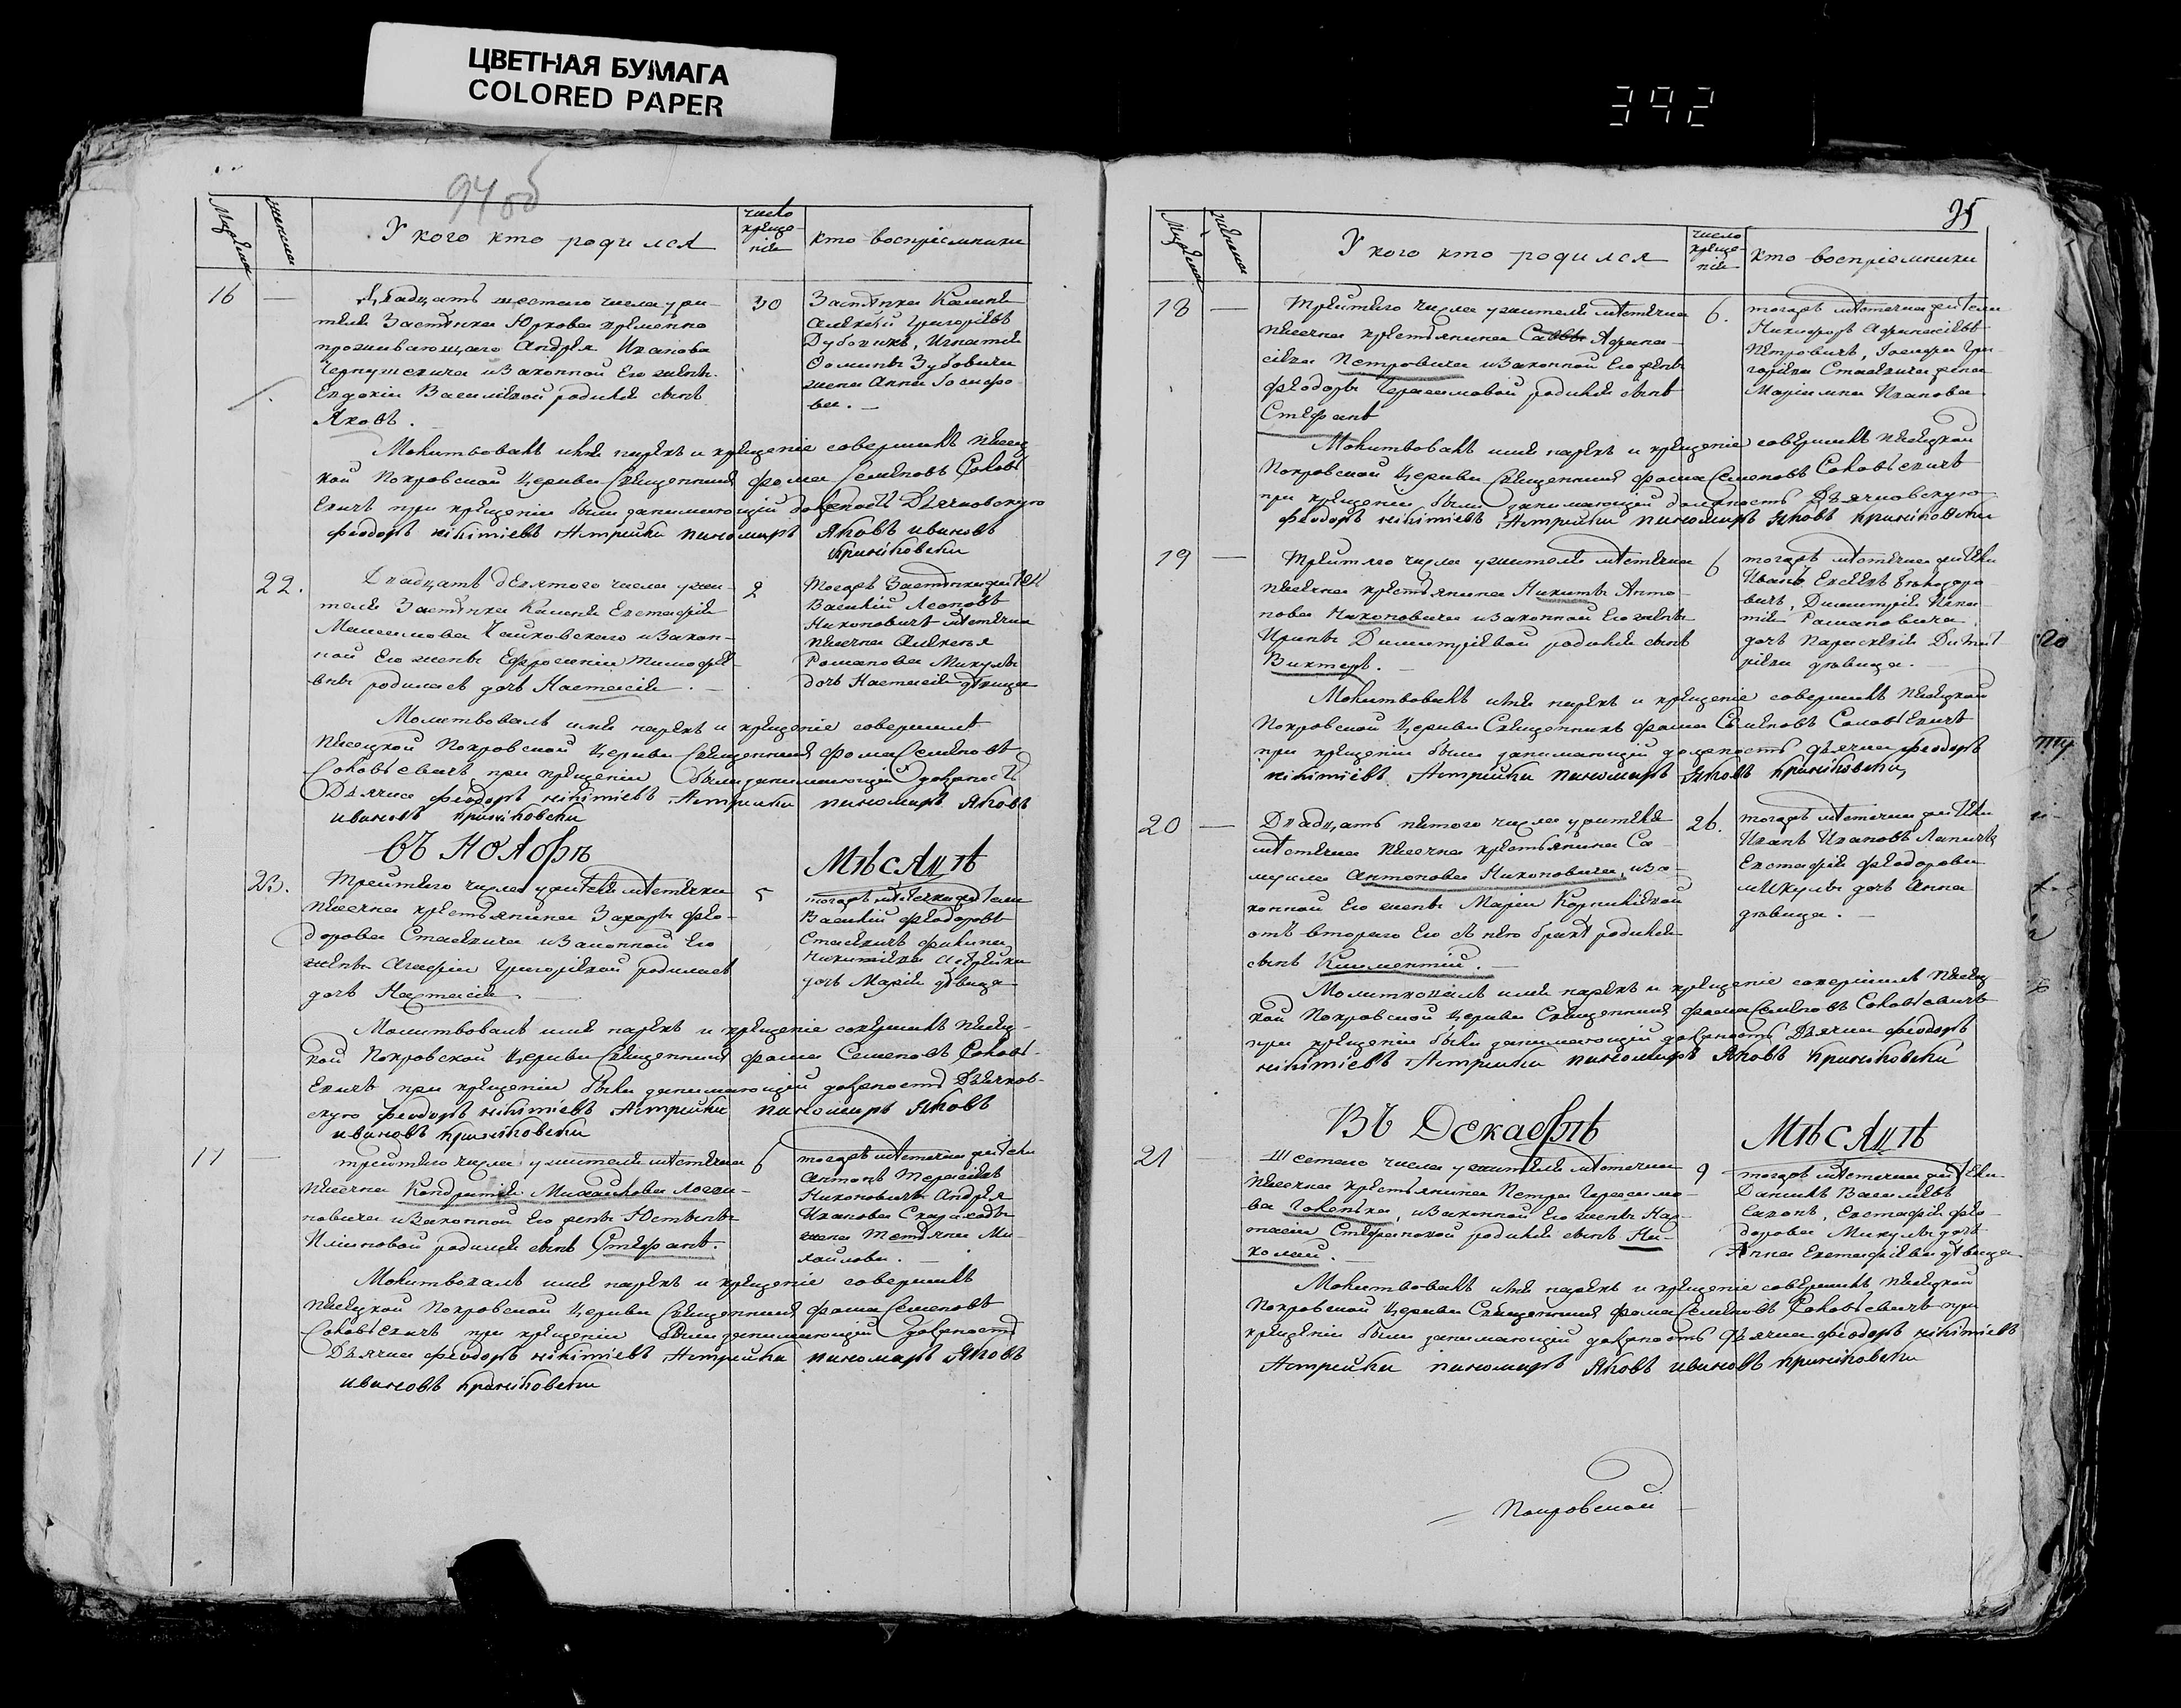 ЦВЕТНАЯ БУМАГА
COLORED PAPER
392
94 об
Мужска
женска
У кого кто родился
число креще-
нія
кто воспріемники
16
Двадцать шестаго числа у жи-
теля Застѣнка Юркова временно
проживающаго Андрея Иванова
изаконной Его жены
Евдокіи Василіевой родился сынъ
Яковъ.
30
Застѣнка Камня
Алексѣй Григоріевъ
Дубовикъ, Игнатія
Ѳомина Зубовича
жена Анна Іосифо-
ва.
Молитвовалъ имя нарекъ и крещеніе совершилъ Плещ-
кой Покровской Церкви Священникъ Фома Семеновъ Соловь
евичъ при крещеніи были занимающій должность Дьячковскую
феодоръ нікітіевъ Астрейка пономаръ Яковъ ивановъ
криніковски
22.
Двадцать девятого числа у жи-
теля Застѣнка Камня Евстафія
Максимова Чайковскаго изакон-
ной Его жены Ефросиніи Тимофѣ-
евны родилась дочь Настасія.
2
Тогожъ Застѣнка жители
Василій Леоновъ
Никоновичъ мѣстечка
Плещеніцъ Алексѣя
Романова Микулы
дочь Настасія дѣвица
Молитвовалъ имя нарекъ и крещеніе совершилъ
Плещецкой Покровской Церкви Священникъ Фома Семеновъ
Соловьевичъ при крещеніи были занимающій должность
Дьячка феодоръ нікітіевъ Астрейка пономаръ Яковъ
ивановъ криніковски
въ Ноябрѣ Мѣсяцѣ
23.
Третьяго числа у жителя мѣстечка
крестьянина Захары Фео-
дорова Стасевича изаконной Его
жены Агафіи Григоріевой родилась
дочь Настасія.
5
тогожъ мѣстечка жители
Василій Феодоровъ
Стасевичъ
Никитіева Астрейки
дочь Марія дѣвица
Молитвовалъ имя нарекъ и крещеніе совершилъ Плещ-
кой Покровской Церкви Священникъ Фома Семеновъ Соловь-
евичъ при крещеніи были занимающій должность Дьячков-
скую феодоръ нікітіевъ Астрейка пономаръ Яковъ
ивановъ криніковски
17
третьяго числа у жителя мѣстечка
Кондратія Михайлова Логви-
новича изаконной Его жены Юстыны
родился сынъ Стефанъ.
6
тогожъ мѣстечка жители
Антонъ
Никоновичъ Андрея
Иванова
жена Тетяна Ми-
хайлова.
Молитвовалъ имя нарекъ и крещеніе совершилъ
Плещецкой Покровской Церкви Священникъ Фома Семеновъ
Соловьевичъ при крещеніи были занимающій должность
Дьячка феодоръ нікітіевъ Астрейка пономаръ Яковъ
ивановъ криніковски
95
Мужска
женска
У кого кто родился
число
креще-
нія
кто воспріемники
18
Третьяго числа у жителя мѣстечка
крестьянина Саввы Афана-
сіева Петровича изаконной Его жены
Феодоры Герасимовой родился сынъ
Стефанъ
6.
тогожъ мѣстечка жители
Никифоръ Афанасіевъ
Петровичъ, Іосифа Гри-
горіева Стасевича жена
Маріянна Иванова
Молитвовалъ имя нарекъ и крещеніе совершилъ Плещецкой
Покровской Церкви Священникъ Фома Семеновъ Соловьевичъ
при крещеніи были занимающій должность Дьячковскую
феодоръ нікітіевъ Астрейка пономаръ Яковъ криніковски
19
Третьяго числа у жителя мѣстечка
крестьянина Никиты Анто-
нова Никоновича изаконной Его жены
Ирины Димитріевой родился сынъ
Викторъ.
6
тогожъ мѣстечка жители
Иванъ
Димитрія
Романовича
дочь Параскевія
дѣвица.
Молитвовалъ имя нарекъ и крещеніе совершилъ Плещецкой
Покровской Церкви Священникъ Фома Семеновъ Соловьевичъ
при крещеніи были занимающій должность дьячка феодоръ
нікітіевъ Астрейка пономаръ Яковъ криніковски
20
Двадцать пятого числа у жителя
мѣстечка крестьянина Са-
муила Антонова Никоновича, иза-
конной Его жены Маріи Корниліевой
отъ втораго Его съ нею брака родился
сынъ Климентій.
26.
тогожъ мѣстечка жители
Иванъ Ивановъ Лапичъ
Евстафія Феодорова
Микулы дочь Анна
дѣвица.
Молитвовалъ имя нарекъ и крещеніе совершилъ Плещ-
кой Покровской Церкви Священникъ Фома Семеновъ Соловьевичъ
при крещеніи были занимающій должность Дьячка феодоръ
нікітіевъ Астрейка пономаръ Яковъ криніковски
Въ Декабрѣ Мѣсяцѣ
21
Шестаго числа у жителя мѣстечка
крестьянина Петра Герасимо-
ва изаконной Его жены Нас-
тасіи Стефановой родился сынъ Ни-
колай.
9
тогожъ мѣстечка жители
Даніилъ Василіевъ
Евстафія Фео-
дорова Микулы дочь
Анна Евстафіева дѣвица
Молитвовалъ имя нарекъ и крещеніе совершилъ Плещецкой
Покровской Церкви Священникъ Фома Семеновъ Соловьевичъ при
крещеніи были занимающій должность дьячка феодоръ нікітіевъ
Астрейка пономаръ Яковъ ивановъ криніковски
Покровской